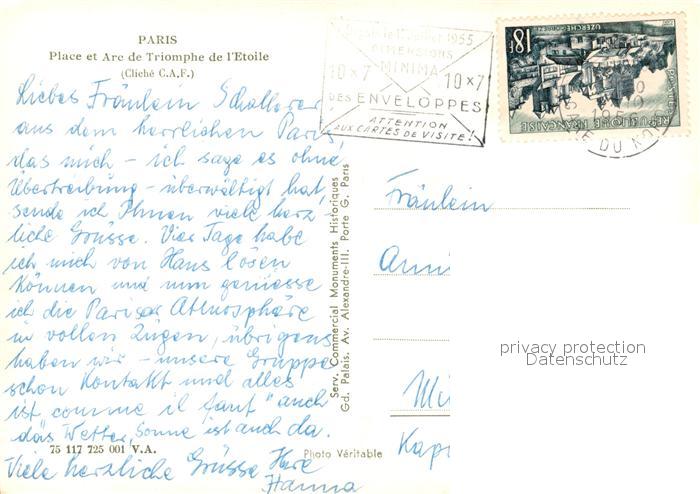 PARIS
Place et Arc de Triomphe de l'Etoile
(Cliché C.A.F.)
Liebes Fräulein
aus dem herrlichen Paris,
das mich - ich sage es ohne
Übertreibung - überwältigt hat,
sende ich Ihnen viele herz-
liche Grüsse. Vier Tage habe
ich mich von Haus lösen
können und nun geniesse
ich die Pariser Atmosphäre
in vollen Zügen, übrigens
haben wir - unsere Gruppe
schon Kontakt und alles
ist comme il faut" auch
das Wetter, Sonne ist auch da.
75 117 725 001 V.A.
Viele herzliche Grüsse Ihre
Hanna
Photo Véritable
Serv. Commercial Monuments Historiques
Gd. Palais. Av. Alexandre-III. Porte G. Paris
1er Juillet 1955
DIMENSIONS
MINIMA
10 x 7 10 x 7
DES ENVELOPPES
ATTENTION
AUX CARTES DE VISITE!
18F
UZERCHE
POSTES
REPUBLIQUE FRANÇAISE
GARE DU NORD
Fräulein
Anni
Mü
Kap
privacy protection
Datenschutz